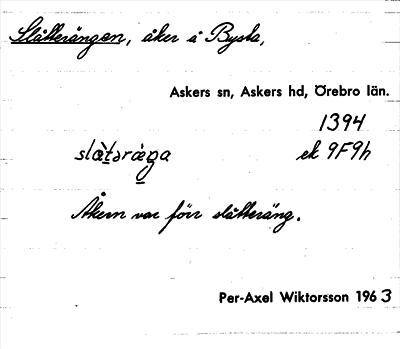 Slåtterängen, åker å Bysta,
Askers sn, Askers hd, Örebro län.
1394
slåt̲əräŋa ek 9F9h
Åkern var förr slåtteräng.
Per-Axel Wiktorsson 1963